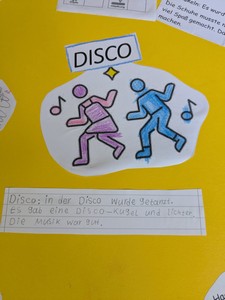 keln: Es wurd
Die Schuhe musste m
viel Spaß gemacht. Da
machen.
DISCO
Disco: in der Disco wurde getanzt.
Es gab eine Disco-Kugel und Lichter.
Die Musik war gut.